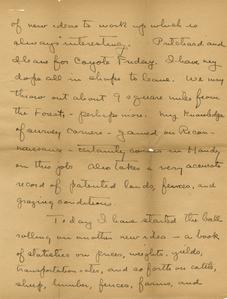 of new ideas to work up which is
always interesting. Pritchard and
I leave for Coyote Friday. I have my
dope all in shape to leave. We may
throw out about 9 square miles from
the Forest - perhaps more. My knowledge
of survey corners - gained on Recon-
naissance - certainly comes in Handy
on this job. Also takes a very accurate
record of patented lands, fences, and
grazing conditions.
Today I have started the ball
rolling on another new idea - a book
of statistics on prices, weights, yields,
transportation rates, and so forth on cattle,
sheep, lumber, fences, farms, and